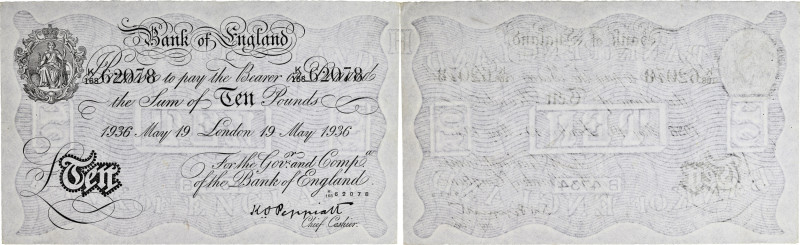 Bank of England
K/168 62078 K/168 62078
Promise to pay the Bearer on Demand
the Sum of Ten Pounds
1936 May 19 London 19 May 1936
For the Govr. and Compa.
of the Bank of England.
K/168 62078
£Ten
K O Peppiatt
Chief Cashier.